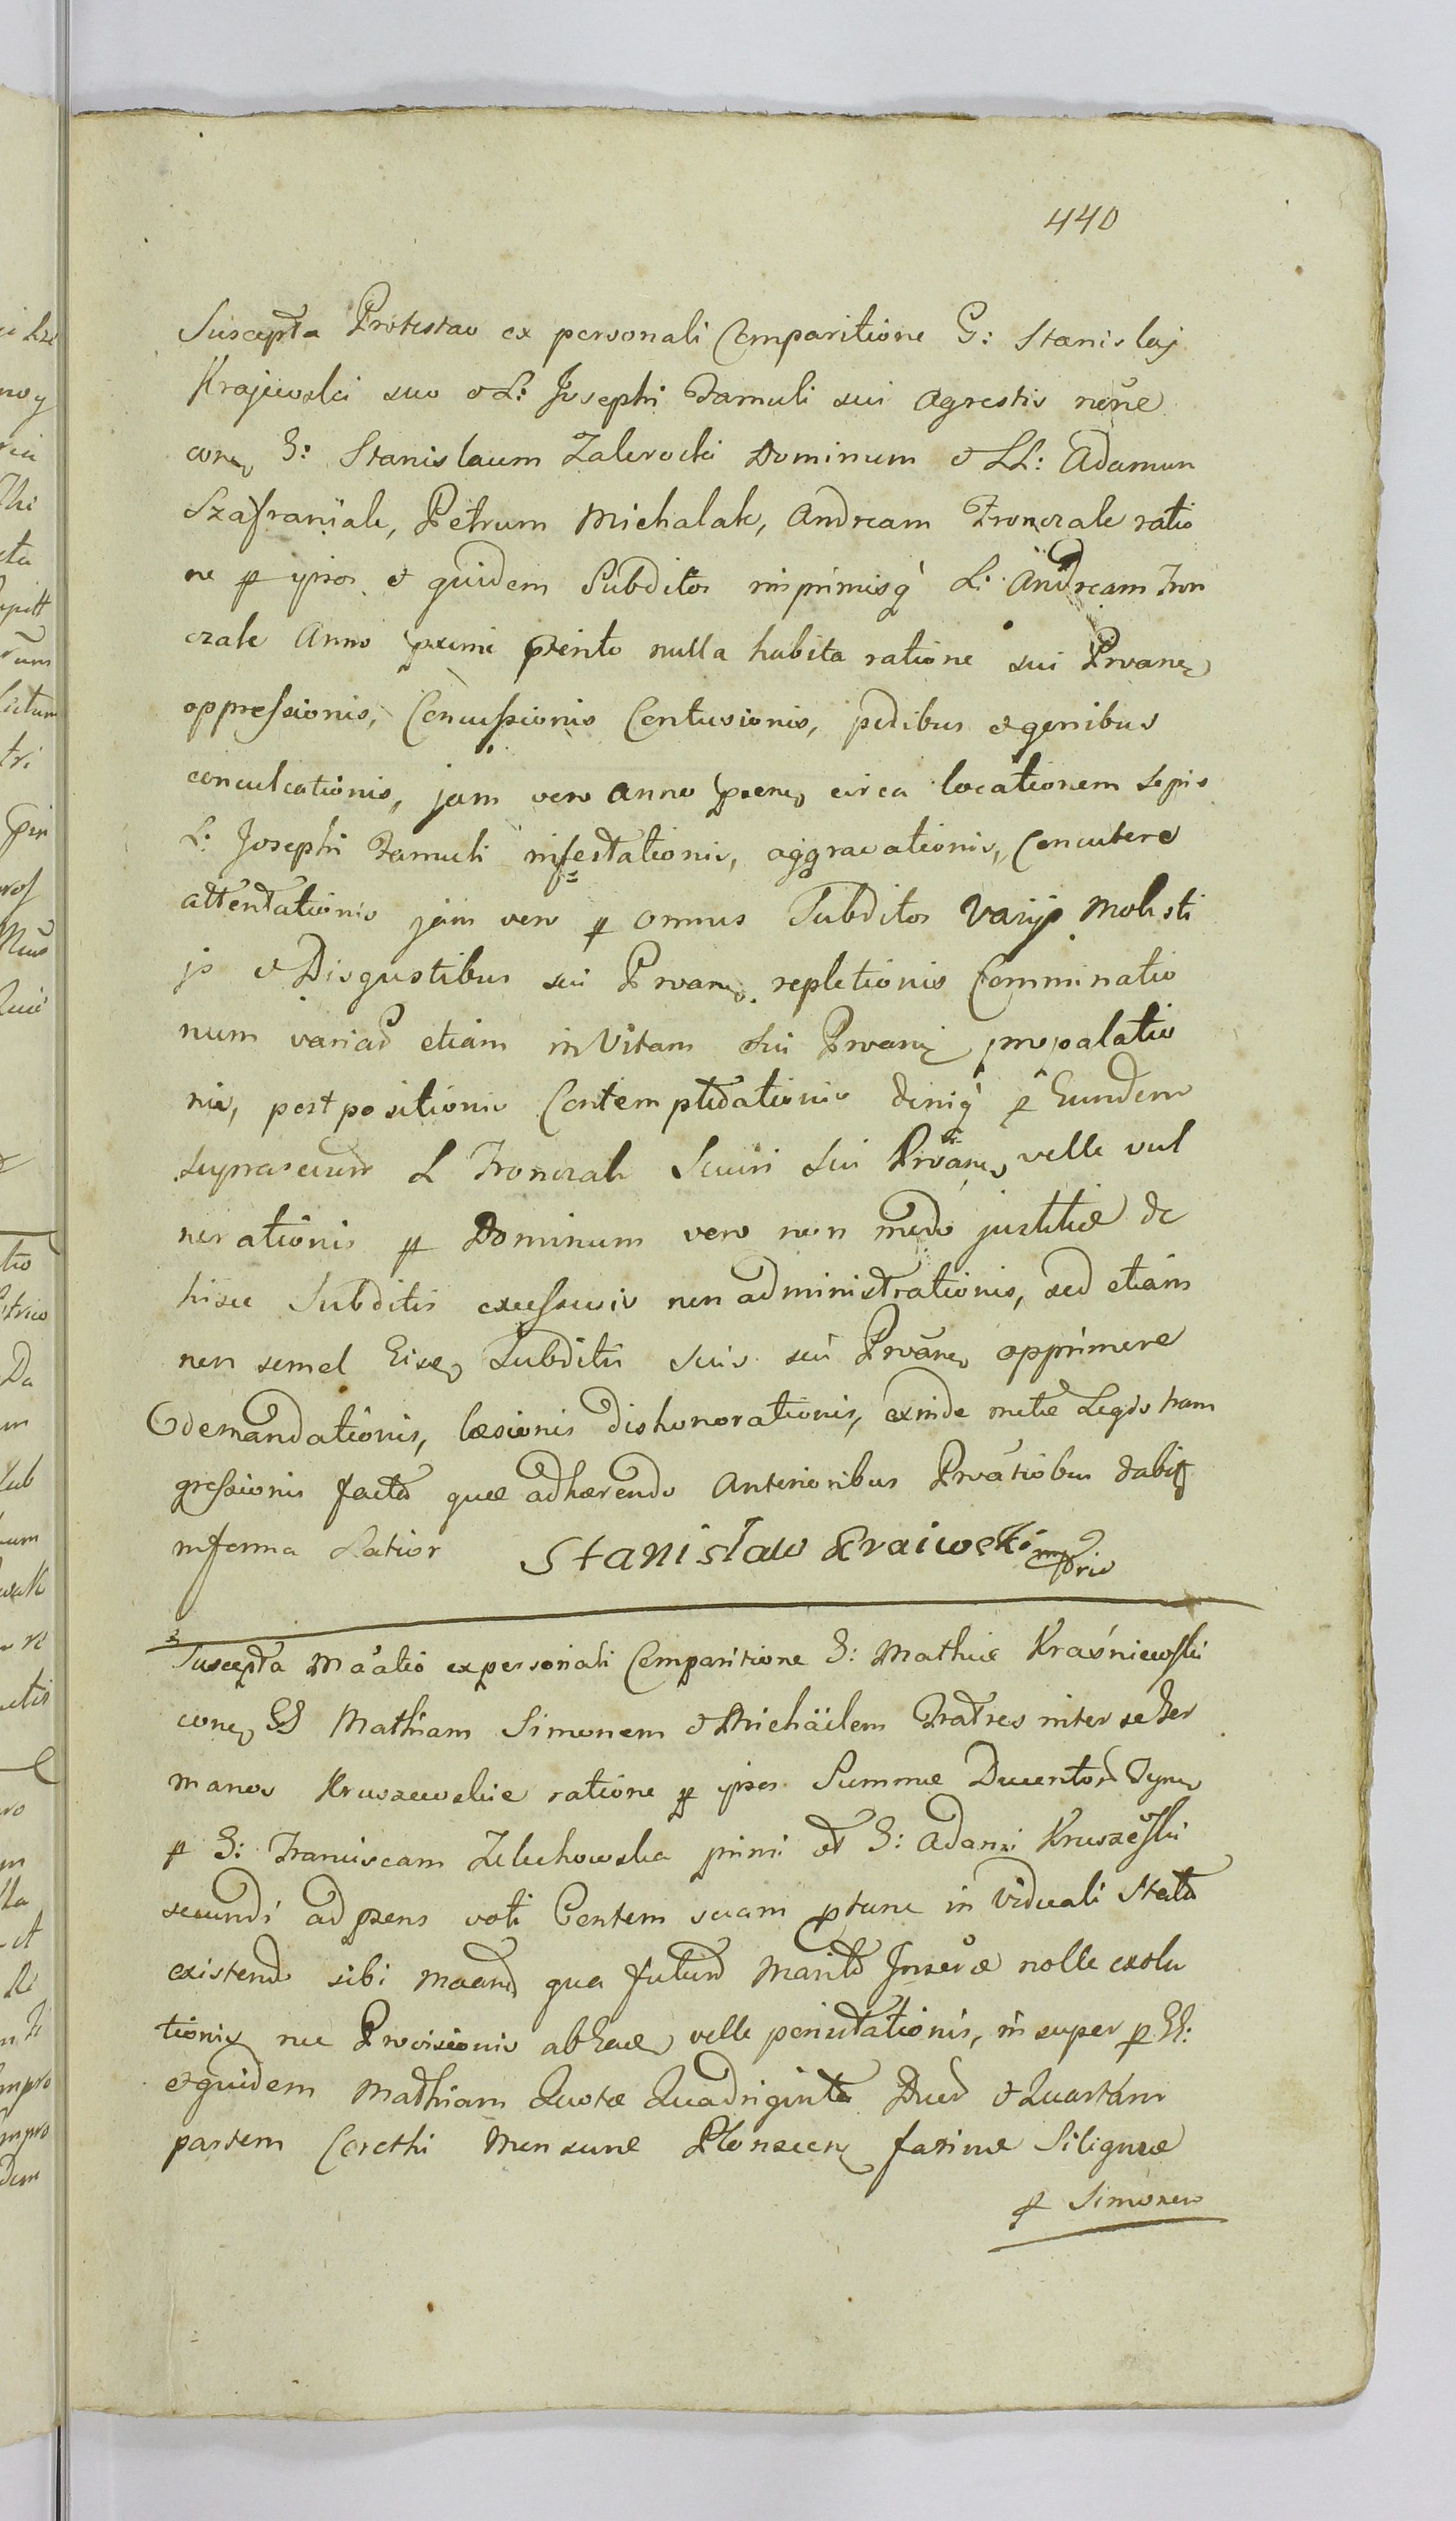 440
Suscepta Protestao ex personali Comparitione G: Stanislaj
Krajewski suo et L: Josephi Famuli sui Agrestis nõne
con G: Stanislaum Zaleroski Dominum et LL: Adamum
Szafraniak, Petrum Michalak, Andream Fronczak ratio
ne p ipsos et quidem Subditos inprimisq L: Andream Fron
czak Anno proxime prento nulla habita ratione sui Prvan
oppressionis, Concussionis Contusionis, pedibus et genibus
conculcationis, jam vero anno pren circa locationem sepis
L: Josephi Famuli infestationis, aggravationis, Concutere
attentationis jam vero p omnes Subditos Varijs Molesti
js et Disgustibus sui Prvan repletionis Comminatio
num variar etiam in Vitam sui Prvan propalatio
nis, postpositionis Contemptidationis deniq p Eundem
suprascrip L Fronczak Securi sui Prvan velle vul
nerationis p Dominum vero non modo justitiæ de
hisce Subditis excessivis non administrationis, sed etiam
non semel Eisd Subditis suis sui Prvan opprimere
demandationis, læsionis dishonorationis, exinde metæ Legis trans
gressionis facta quæ adhærendo Anterioribus Prvatiobus dabit
in forma Latior Stanisław Kraiwski mprio
Suscepta Maatio ex personali Comparitione G: Mathiæ Kraśniewski
con GG Mathiam Simonem et Michäelem Fratres inter se Ger
manos Kruszewskie ratione p ipsos Summæ Ducentor Tyn
p G: Franciscam Zelechowska primi et G: Adami Kruszewski
secundi ad præns voti Contem suam p tunc in Viduali Statu
existend sibi Maand qua futuro Marito Inser nolle exolu
tionis nec Provisionis ab Ead velle penitationis, in super p GG:
et quidem Mathiam Quotæ Quadriginta Duor et Quartam
partem Corethi Mensuræ Plonscen farinæ Siligneæ
p Simonem